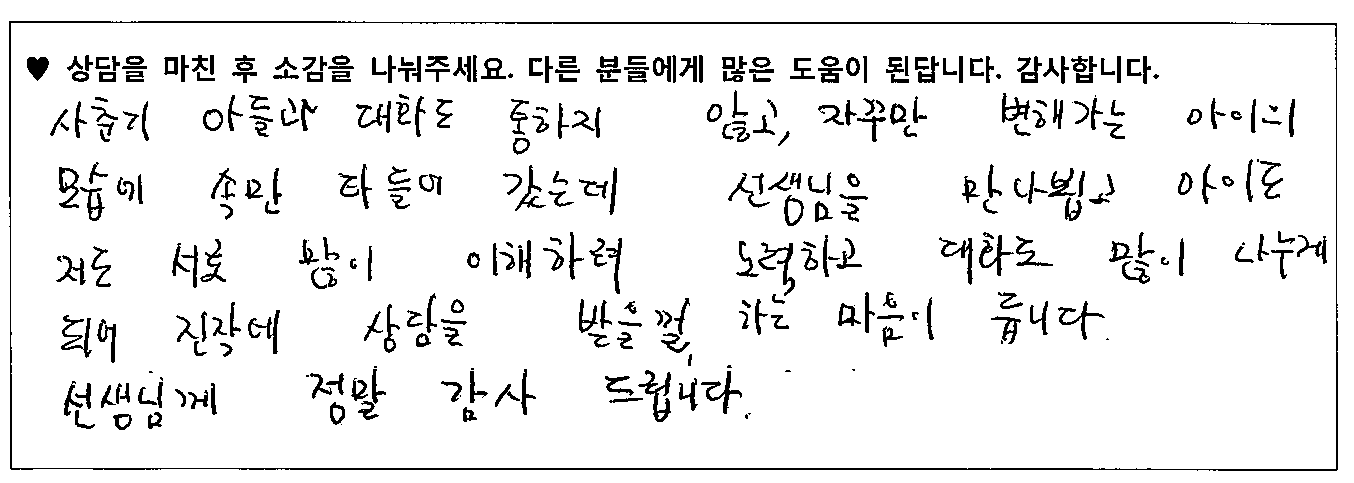 ♥ 상담을 마친 후 소감을 나눠주세요. 다른 분들에게 많은 도움이 된답니다. 감사합니다.
사춘기 아들과 대화도 통하지 않고, 자꾸만 변해가는 아이의
모습에 속만 타들어 갔는데 선생님을 만나뵙고 아이도
저도 서로 많이 이해하려 노력하고 대화도 많이 나누게
되어 진작에 상담을 받을껄, 하는 마음이 듭니다.
선생님께 정말 감사 드립니다.